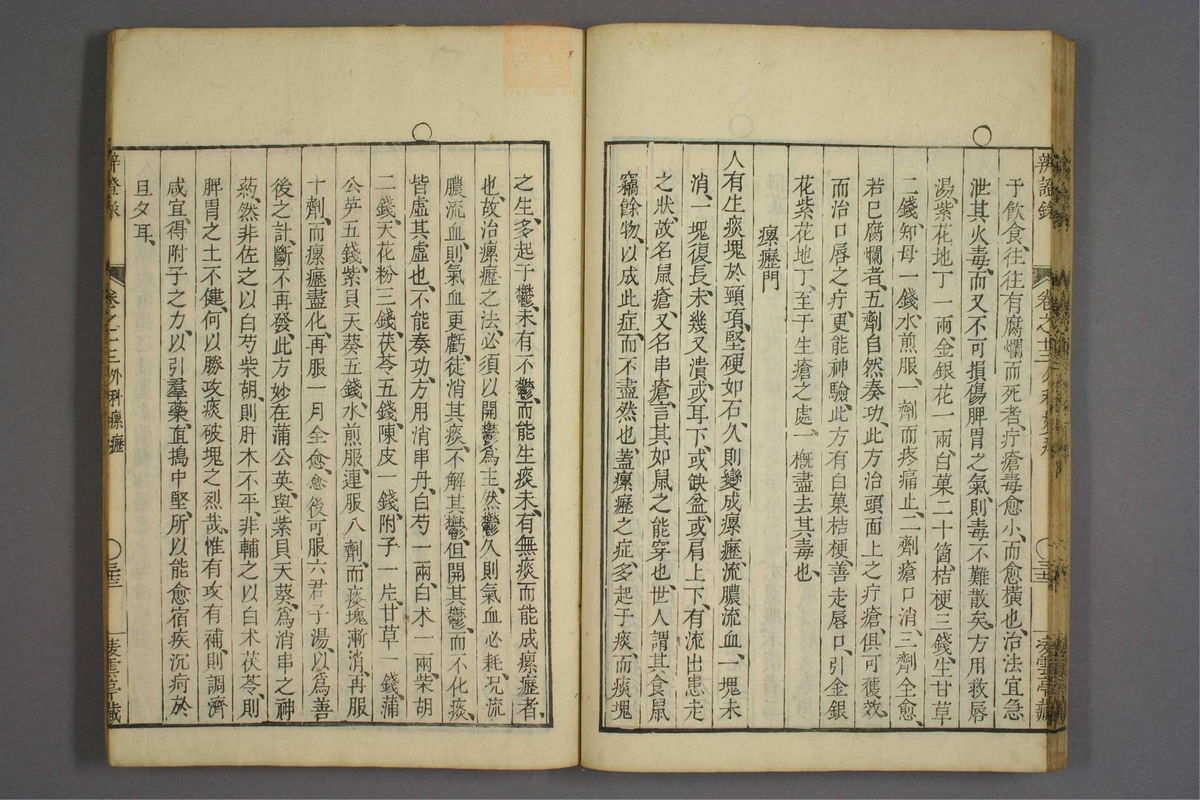 于飲食、往往有腐爛而死者、疔瘡毒愈小、而愈橫也、治法宜急
泄其火毒、而又不可損傷脾胃之氣、則毒不難散矣、方用救唇
湯、紫花地丁一兩、金銀花一兩、白菓二十箇、桔梗三錢、生甘草
二錢、知母一錢、水煎服、一劑而疼痛止、二劑瘡口消、三劑全愈、
若已腐爛者、五劑自然奏功、此方治頭面上之疔瘡、俱可獲效、
而治口唇之疔、更能神驗、此方有白菓桔梗、善走唇口、引金銀
花紫花地丁、至于生瘡之處、一概盡去其毒也、
瘰癧門
人有生痰塊於頸項、堅硬如石、久則變成瘰癧、流膿流血、一塊未
消、一塊復長、未幾又潰、或耳下、或缺盆、或肩上下、有流出患走
之狀、故名鼠瘡、又名串瘡、言其如鼠之能穿也、世人謂其食鼠
竊餘物、以成此症、而不盡然也、蓋瘰癧之症、多起于痰、而痰塊
之生、多起于鬱、未有不鬱、而能生痰、未有無痰而能成瘰癧者、
也、故治瘰癧之法、必須以開鬱爲主、然鬱久則氣血必耗、况流
膿流血、則氣血更虧、徒消其痰、不解其鬱、但開其鬱、而不化痰、
皆虛其虛也、不能奏功、方用消串丹、白芍一兩、白术一兩、柴胡
二錢、天花粉三錢、茯苓五錢、陳皮一錢、附子一片、甘草一錢、蒲
公英五錢、紫貝天葵五錢、水煎服、連服八劑、而痰塊漸消、再服
十劑、而瘰癧盡化、再服一月全愈、愈後可服六君子湯、以爲善
後之計、斷不再發、此方妙在蒲公英、與紫貝天葵、爲消串之神
葯、然非佐之以白芍柴胡、則肝木不平、非輔之以白术茯苓、則
脾胃之土不健、何以勝攻痰破塊之烈哉、惟有攻有補、則調濟
咸宜、得附子之力、以引羣藥、直搗中堅、所以能愈宿疾沉疴於
旦夕耳、
卷之十三外科瘰癧
三三
凌雲亭藏